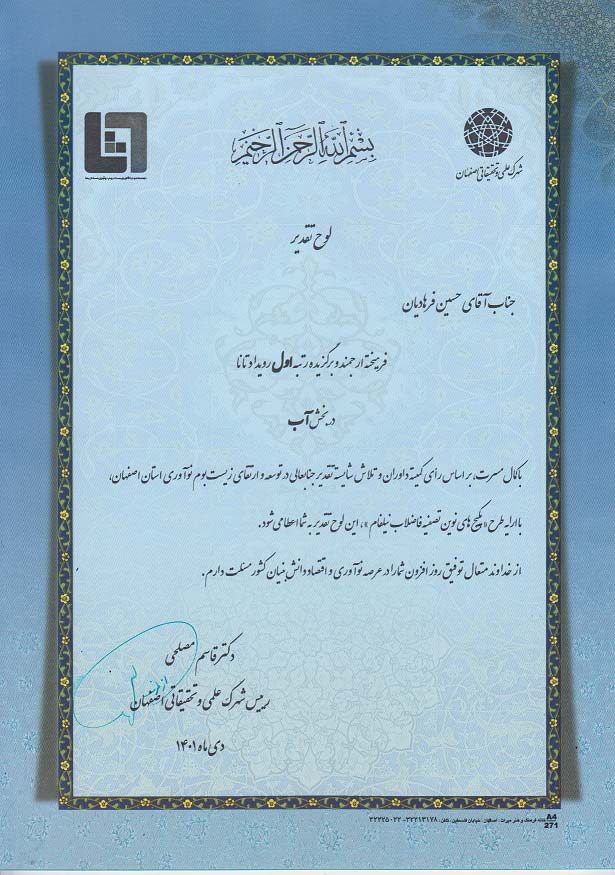 بسم الله الرحمن الرحیم
شهرک علمی و تحقیقاتی اصفهان
لوح تقدیر
جناب آقای حسین فرهادیان
فرهیخته ارجمند و برگزیده رتبه اول رویداد تانا
در بخش آب
با کمال مسرت، بر اساس رأی کمیته داوران و تلاش شایسته تقدیر جنابعالی در توسعه و ارتقای زیست بوم نوآوری استان اصفهان،
با ارایه طرح «پکیج های نوین تصفیه فاضلاب نیلفام»، این لوح تقدیر به شما اعطا می شود.
از خداوند متعال توفیق روز افزون شما را در عرصه نوآوری و اقتصاد دانش بنیان کشور مسئلت دارم.
دکتر قاسم مصلحی
رییس شهرک علمی و تحقیقاتی اصفهان
دی ماه ۱۴۰۱
A4
271
خانه فرهنگ و هنر میراث، اصفهان، خیابان فلسطین، تلفن: ۳۲۲۱۳۱۷۸-۳۲۲۲۵۰۲۲